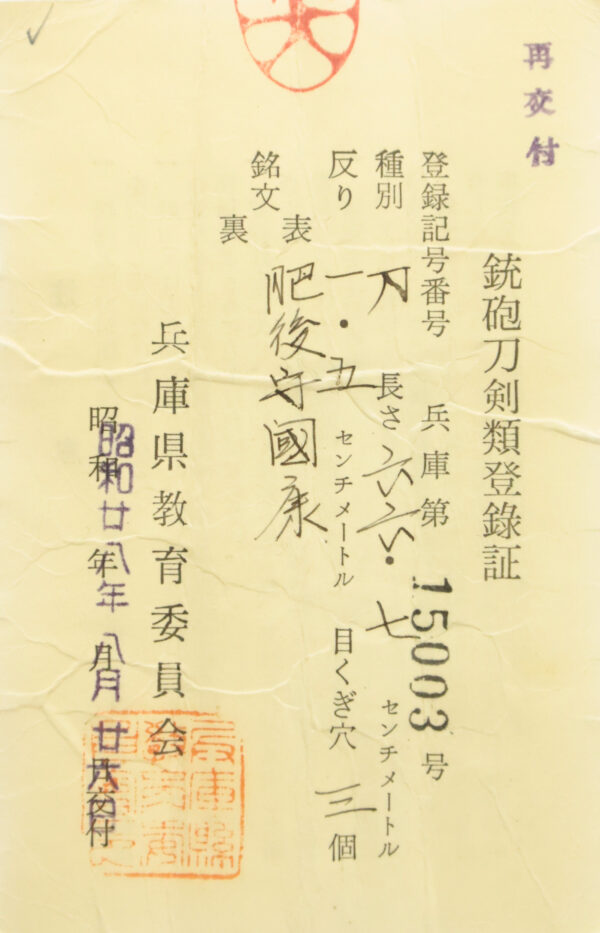 再交付
銃砲刀剣類登録証
登録記号番号 兵庫第 15003 号
種別 刀 長さ 六六・七 センチメートル
反り 一・五 センチメートル 目くぎ穴 三 個
銘文 表 肥後守國康
裏
兵庫県教育委員会
昭和廿八年八月廿六日交付